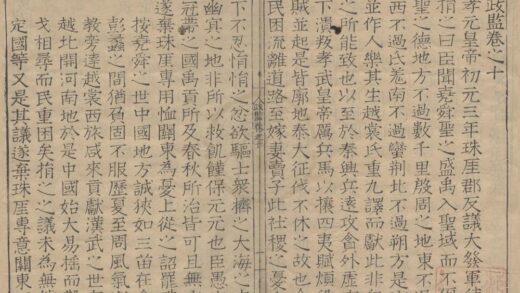 政監卷之十
孝元皇帝初元三年珠厓郡反議大發軍
捐之曰臣聞堯舜聖之盛禹入聖域而不
聖之德地方不過數千里殷周之地東不
西不過氐羌南不過蠻荊北不過朔方是
並作人樂其生越裳氏重九譯而獻此非
之所能致也以至於秦興兵遠攻貪外虛
下潰叛孝武皇帝厲兵馬以攘四夷賦煩
賊並起是皆廓地泰大征伐不休之故也今
民困流離道路至嫁妻賣子此社稷之憂
下不忍悁悁之忿欲驅士衆擠之大海之
幽冥之地非所以救飢饉保元元也臣愚
冠帶之國禹貢所及春秋所治皆可且無
遂棄珠厓專用恤關東為憂上從之詔罷
按堯舜之世中國地方誠狹如三苗在
彭蠡之間猶負固不服歷夏至周風氣
敎旁達越裳西旅咸來貢獻漢武之世
越北開河南地於是中國始大易搖而
戈相尋而民重困矣捐之之議未為無
定國等又是其議遂棄珠厓專意關東